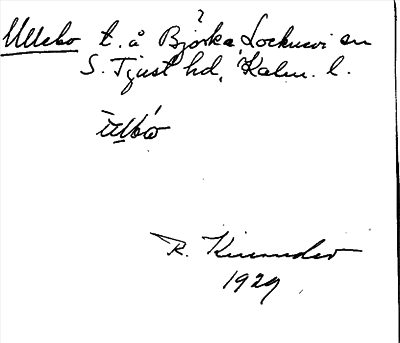 ?
Ullebo t. å Björka, Locknevi sn
S. Tjust hd, Kalm. l.
R. Kinnander
1929